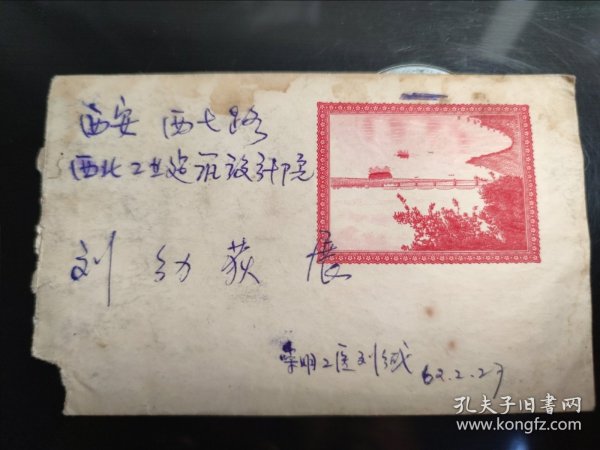 西安 西七路
西北工业建筑设计院
刘幼荻 展
工医刘缄
62.2.27
孔夫子旧书网
www.kongfz.com